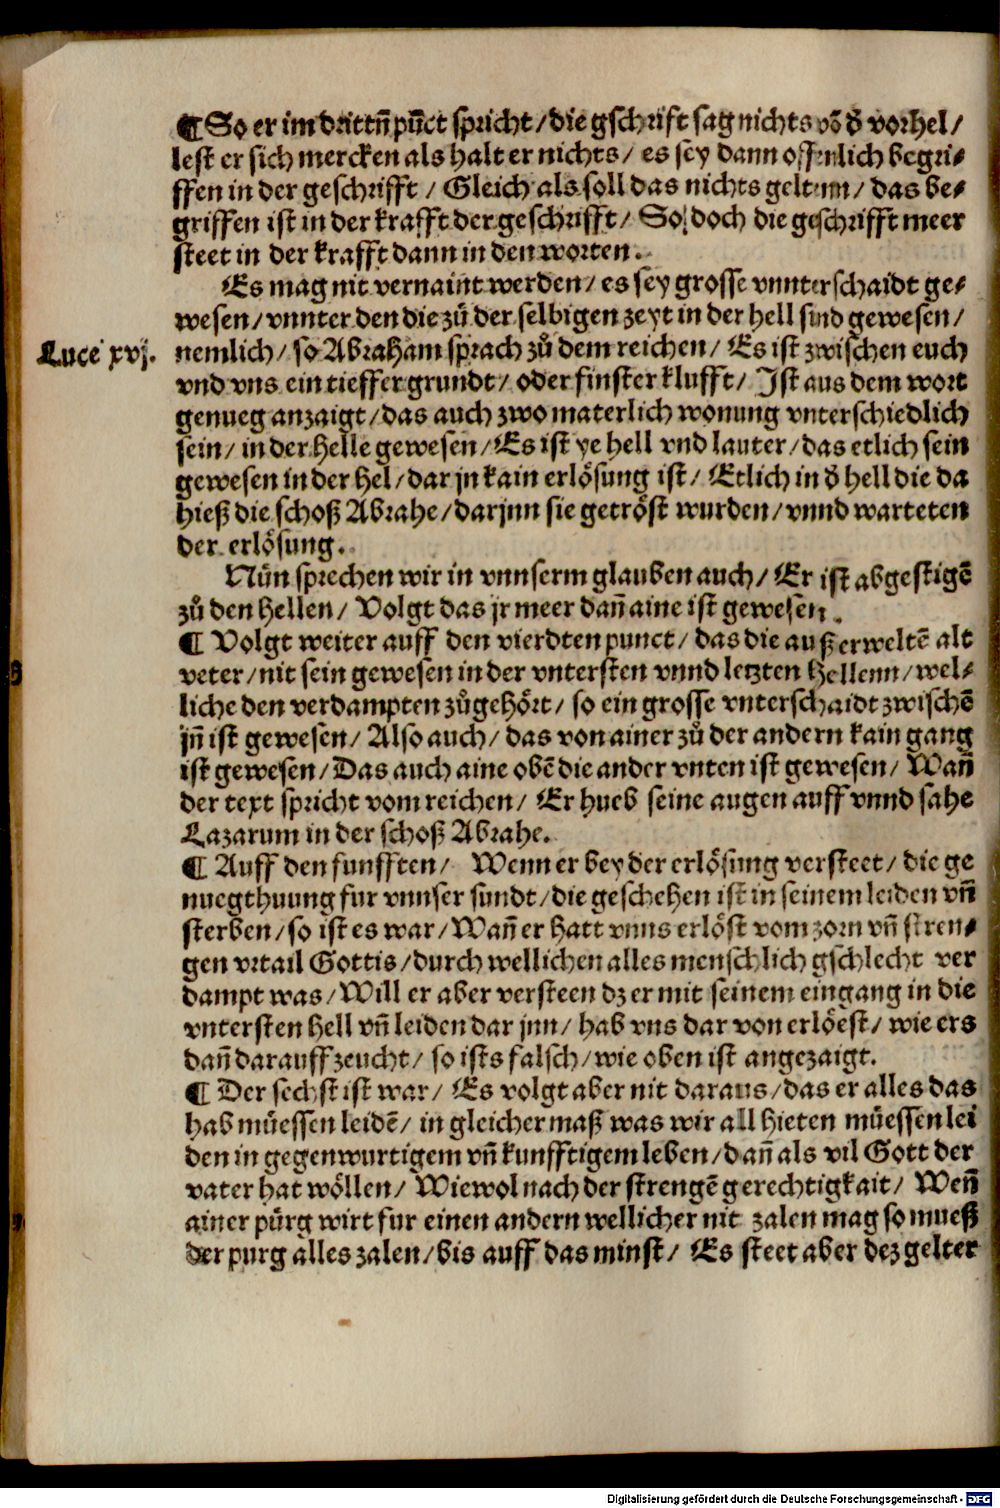 ¶ So er im drittñ pũct spricht / die gschrift sag nichts võ ð vorhel /
lest er sich mercken als halt er nichts / es sey dann offenlich begri-
ffen in der geschrifft / Gleich als soll das nichts geltenn / das be-
griffen ist in der krafft der geschrifft / So doch die geschrifft meer
steet in der krafft dann in den worten.
Es mag nit vernaint werden / es sey grosse vnnterschaidt ge-
wesen / vnnter den die zů der selbigen zeyt in der hell sind gewesen /
Luce xvj.
nemlich / so Abraham sprach zů dem reichen / Es ist zwischen euch
vnd vns ein tieffer grundt / oder finster klufft / Ist aus dem wort
genueg anzaigt / das auch zwo materlich wonung vnterschiedlich
sein / in der Helle gewesen / Es ist ye hell vnd lauter / das etlich sein
gewesen in der Hel / dar jn kain erlösung ist / Etlich in ð hell die da
hieß die schoß Abrahe / darjnn sie getröst wurden / vnnd warteten
der erlösung.
Nůn sprechen wir in vnnserm glauben auch / Er ist abgestigē
zů den Hellen / Volgt das jr meer dañ aine ist gewesen.
¶ Volgt weiter auff den vierdten punct / das die außerweltē alt
veter / nit sein gewesen in der vntersten vnnd letzten Hellenn / wel-
liche den verdampten zůgehört / so ein grosse vnterschaidt zwischē
jñ ist gewesen / Also auch / das von ainer zů der andern kain gang
ist gewesen / Das auch aine obē die ander vnten ist gewesen / Wañ
der text spricht vom reichen / Er hueb seine augen auff vnnd sahe
Lazarum in der schoß Abrahe.
¶ Auff den funfften / Wenn er bey der erlösung versteet / die ge
nuegthuung fur vnnser sundt / die geschehen ist in seinem leiden vñ
sterben / so ist es war / Wañ er hatt vnns erlöst vom zorn vñ stren-
gen vrtail Gottis / durch wellichen alles menschlich gschlecht ver
dampt was / Will er aber versteen dz er mit seinem eingang in die
vntersten Hell vñ leiden dar jnn / hab vns dar von erlöest / wie ers
dañ darauff zeucht / so ists falsch / wie oben ist angezaigt.
¶ Der sechst ist war / Es volgt aber nit daraus / das er alles das
hab müessen leidē / in gleicher maß was wir all hieten müessen lei
den in gegenwurtigem vñ kunfftigem leben / dañ als vil Gott der
vater hat wöllen / Wiewol nach der strengē gerechtigkait / Weñ
ainer pürg wirt fur einen andern wellicher nit zalen mag so mueß
der purg alles zalen / bis auff das minst / Es steet aber dez gelter
Digitalisierung gefördert durch die Deutsche Forschungsgemeinschaft - DFG